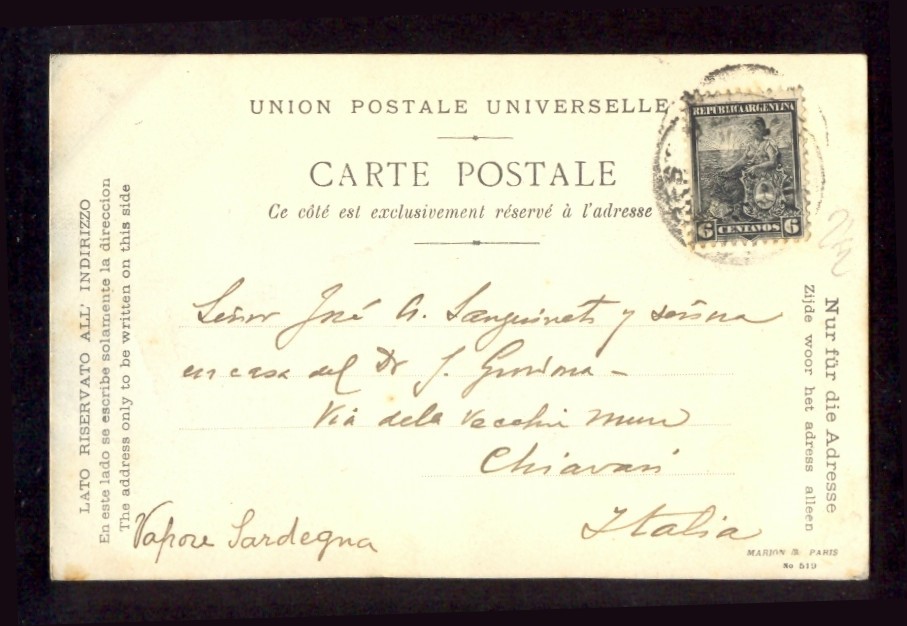 UNION POSTALE UNIVERSELLE
CARTE POSTALE
Ce côté est exclusivement réservé à l'adresse
REPUBLICA ARGENTINA
6 CENTAVOS 6
LATO RISERVATO ALL' INDIRIZZO
En este lado se escribe solamente la direccion
The address only to be written on this side
Señor José A. Sanguineti y señora
en casa del Dr J.
Via dela Vecchie Mura
Chiavari
Italia
Vapore Sardegna
Nur für die Adresse
Zijde woor het adress alleen
MARION PARIS
No 519